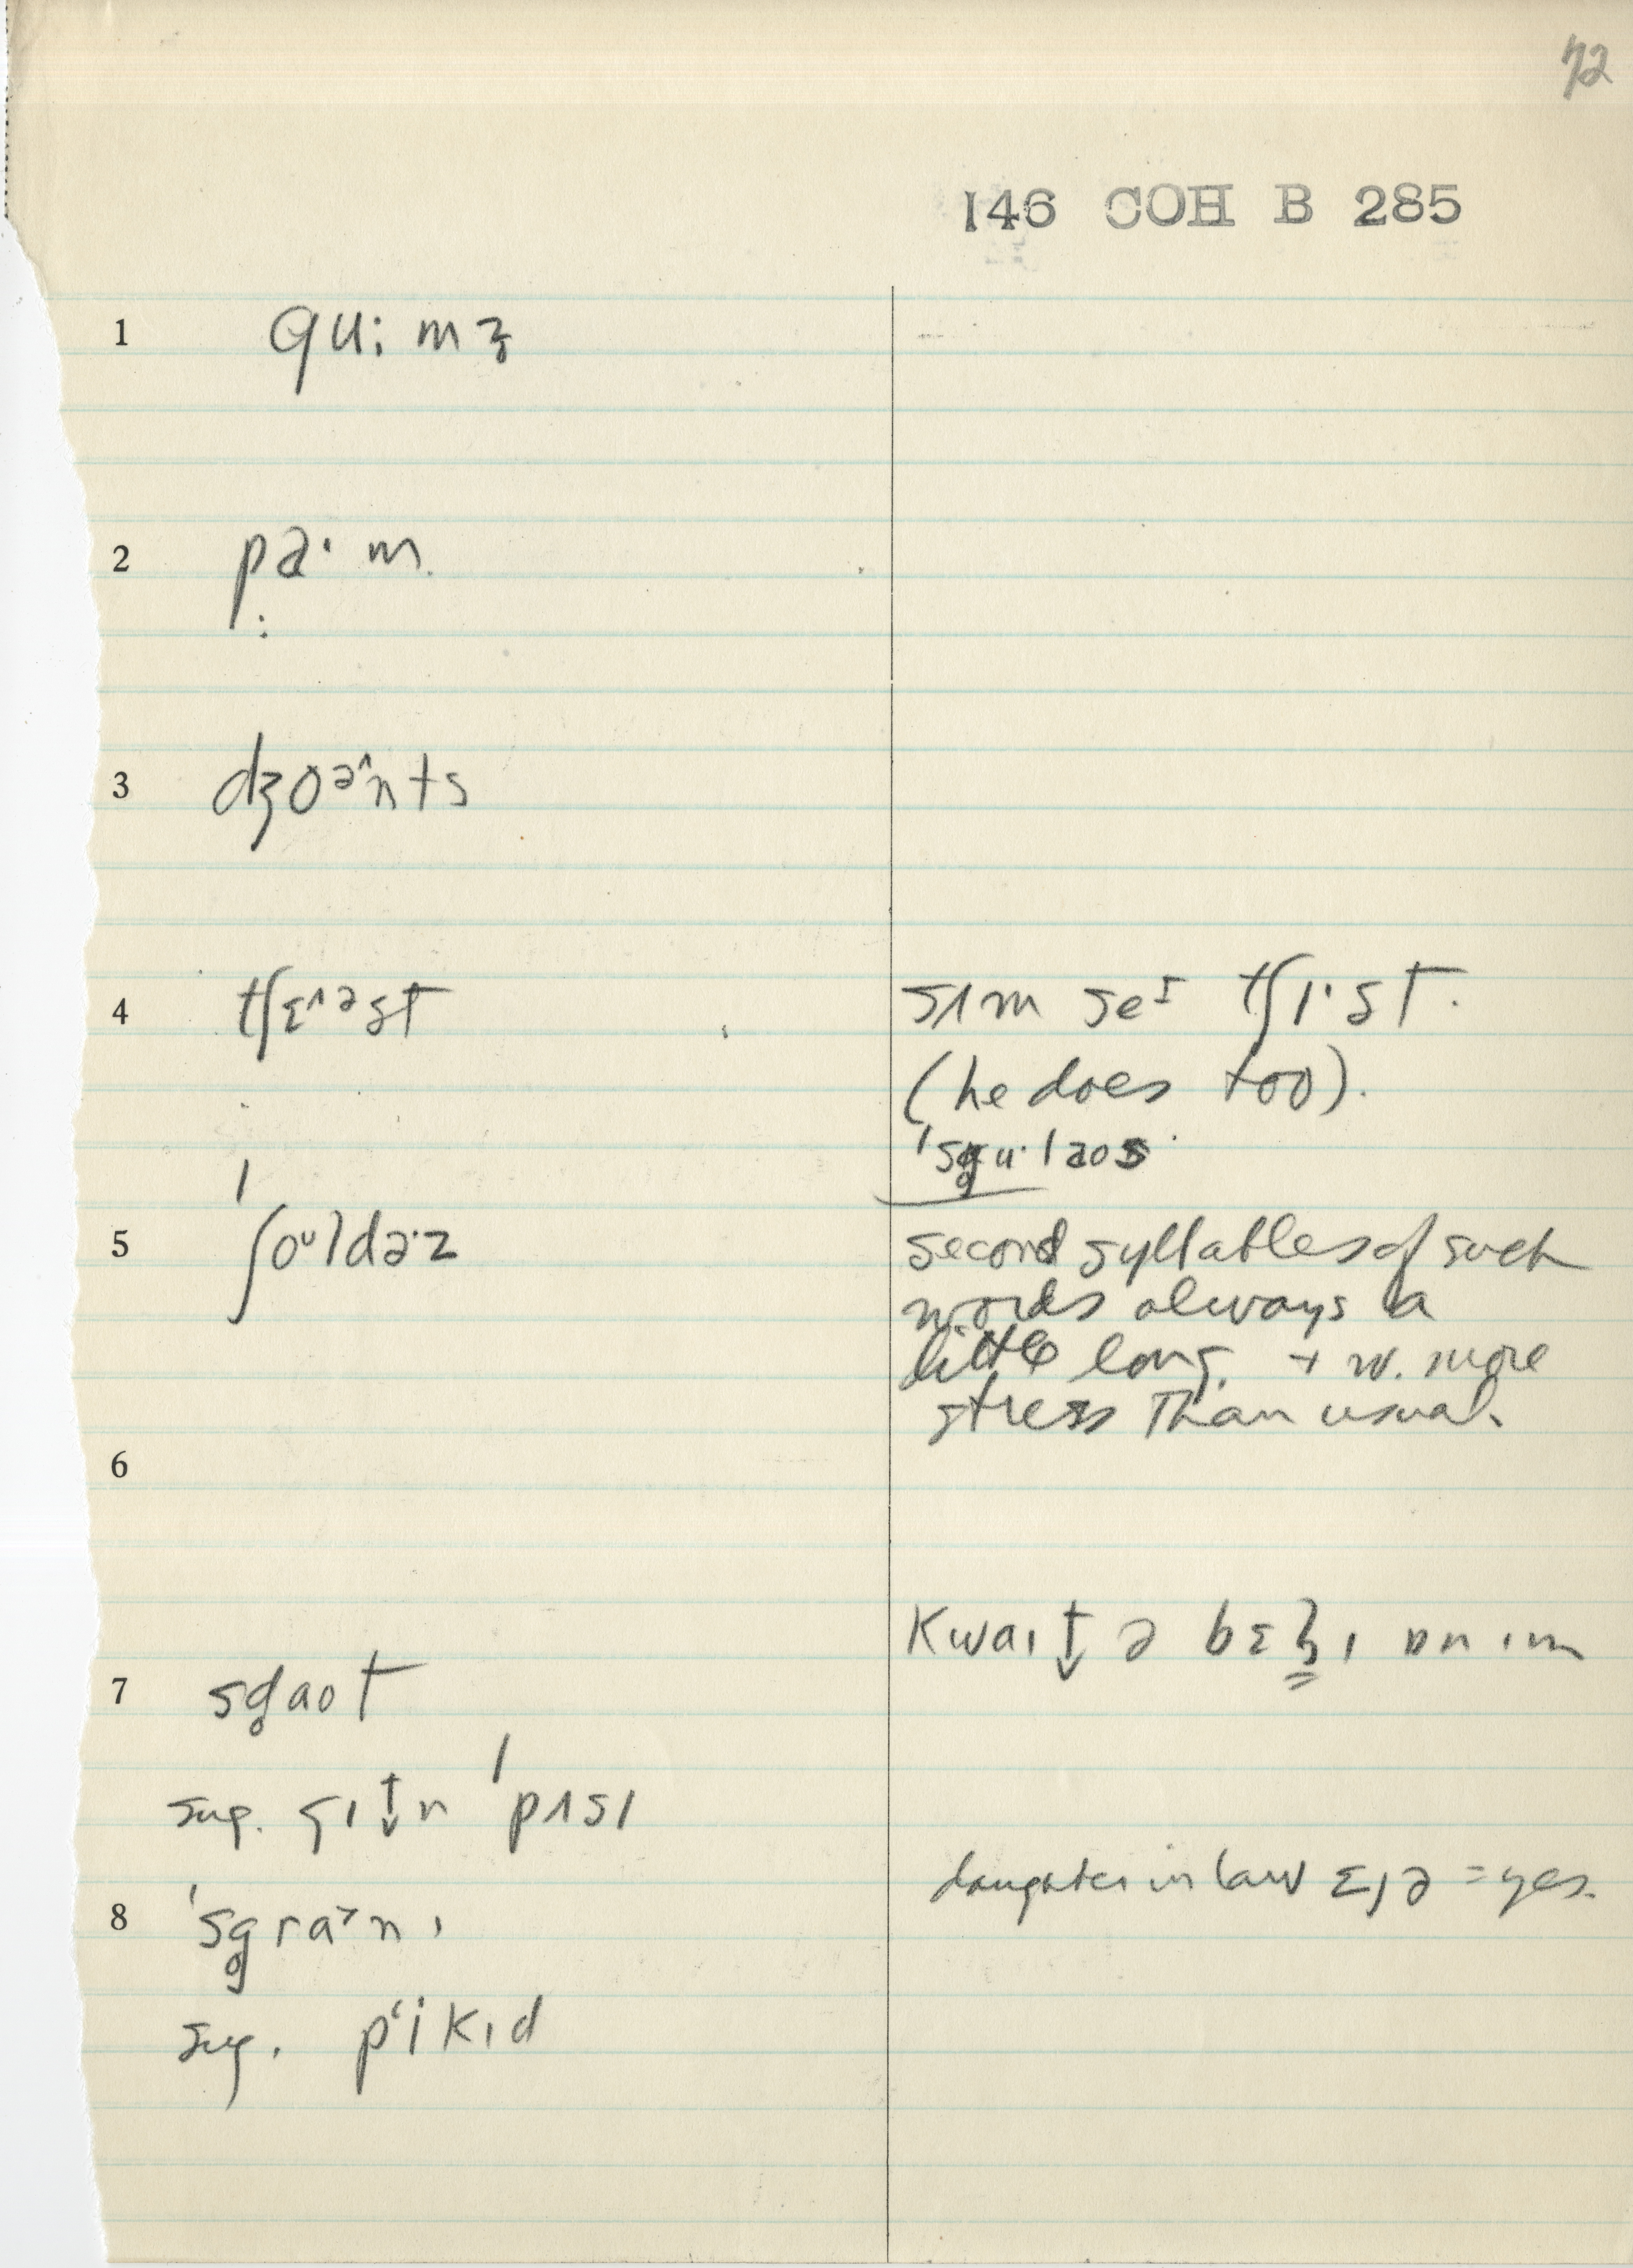 72
146 COH B 285
1 qu: m z̥
2 pa· m.
3 dʒoəʌnts
4 tʃɛʌəst
sʌm seɪ tʃɪ·st.
(he does too).
'sg̥u·laos
5 'ʃoʊldə·z
second syllables of such
words always a
little long. + w. more
stress than usual.
6
kwaɪt↓ ə bɛʒɪ ɒn ɪm
7 sg̥aot
sug. sɪt↓n 'pʌsɪ
daughter in law ɛjə = yes.
8 'sg̥ra˃nɪ
sug. pʻikɪd